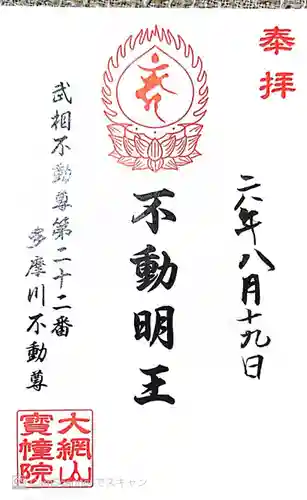 奉拝
二八年八月十九日
不動明王
武相不動尊第二十二番
多摩川不動尊
大綱山
寶幢院
でスキャン